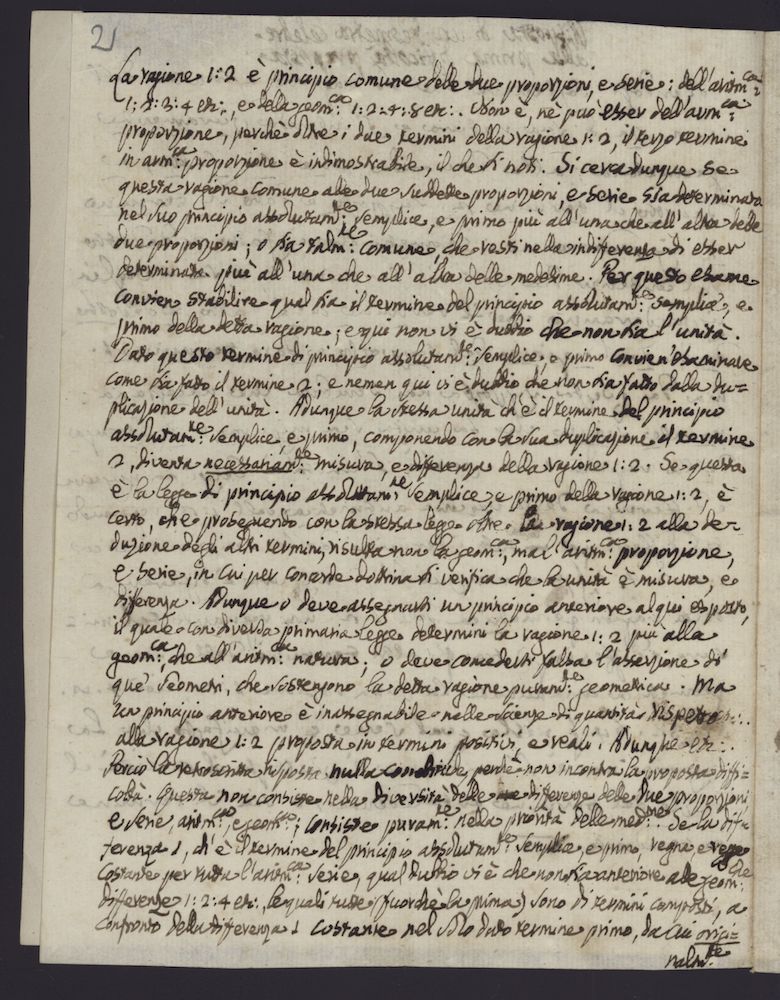 2
La ragione 1:2 è principio comune delle due proporzioni, e serie: dell'aritm:ca
1:2:3:4 etc:, e della geom:ca 1:2:4:8 etc:. Non è, nè può esser dell'arm:ca
proporzione, perchè oltre i due termini della ragione 1:2, il terzo termine
in arm:ca proporzione è indimostrabile, il che si noti. Si cerca dunque se
questa ragione comune alle due suddette proporzioni, e serie sia determinata
nel suo principio assolutam:te semplice, e primo più all'una che all'altra delle
due proporzioni; o sia talm:te comune, che resti nella indifferenza di esser
determinata più all'una che all'altra delle medesime. Per questo esame
convien stabilire qual sia il termine del principio assolutam:te semplice, e
primo della detta ragione; e qui non vi è dubbio che non sia l'unità.
Dato questo termine di principio assolutam:te semplice, e primo convien'esaminare
come sia fatto il termine 2; e nemen qui vi è dubbio che non sia fatto dalla du=
plicazione dell'unità. Adunque la stessa unità ch'è il termine del principio
assolutam:te semplice, e primo, componendo con la sua duplicazione il termine
2, diventa necessariam:te misura, e differenza della ragione 1:2. Se questa
è la legge di principio assolutam:te semplice, e primo della ragione 1:2, è
certo, che proseguendo con la stessa legge oltre la ragione 1:2 alla de=
duzione degli altri termini, risulta non la geom:ca, ma l'aritm:ca proporzione,
e serie, in cui per concorde dottrina si verifica che la unità è misura, e
differenza. Adunque o deve assegnarsi un principio anteriore al qui esposto,
il quale con diversa primaria legge determini la ragione 1:2 più alla
geom:ca, che all'aritm:ca natura; o deve concedersi falsa l'asserzione di
que' Geometri, che sostengono la detta ragione puram:te geometrica. Ma
un principio anteriore è inassegnabile nelle scienze di quantità rispetto
alla ragione 1:2 proposta in termini positivi, e reali. Adunque etc:.
Perciò la retroscritta risposta nulla conchiude, perchè non incontra la proposta diffi=
coltà. Questa non consiste nella diversità delle differenze delle due proporzioni
e serie, aritm:ca, e geom:ca; consiste puram:te nella priorità delle med:me. Se la dif=
ferenza 1, ch'è il termine del principio assolutam:te semplice, e primo, regna e regge
costante per tutta l'aritm:ca serie, qual dubbio vi è che non sia anteriore alle geom:che
differenze 1:2:4 etc:, le quali tutte (fuorchè la prima) sono di termini composti, a
confronto della differenza 1 costante nel solo dato termine primo, da cui origi=
nalm:te